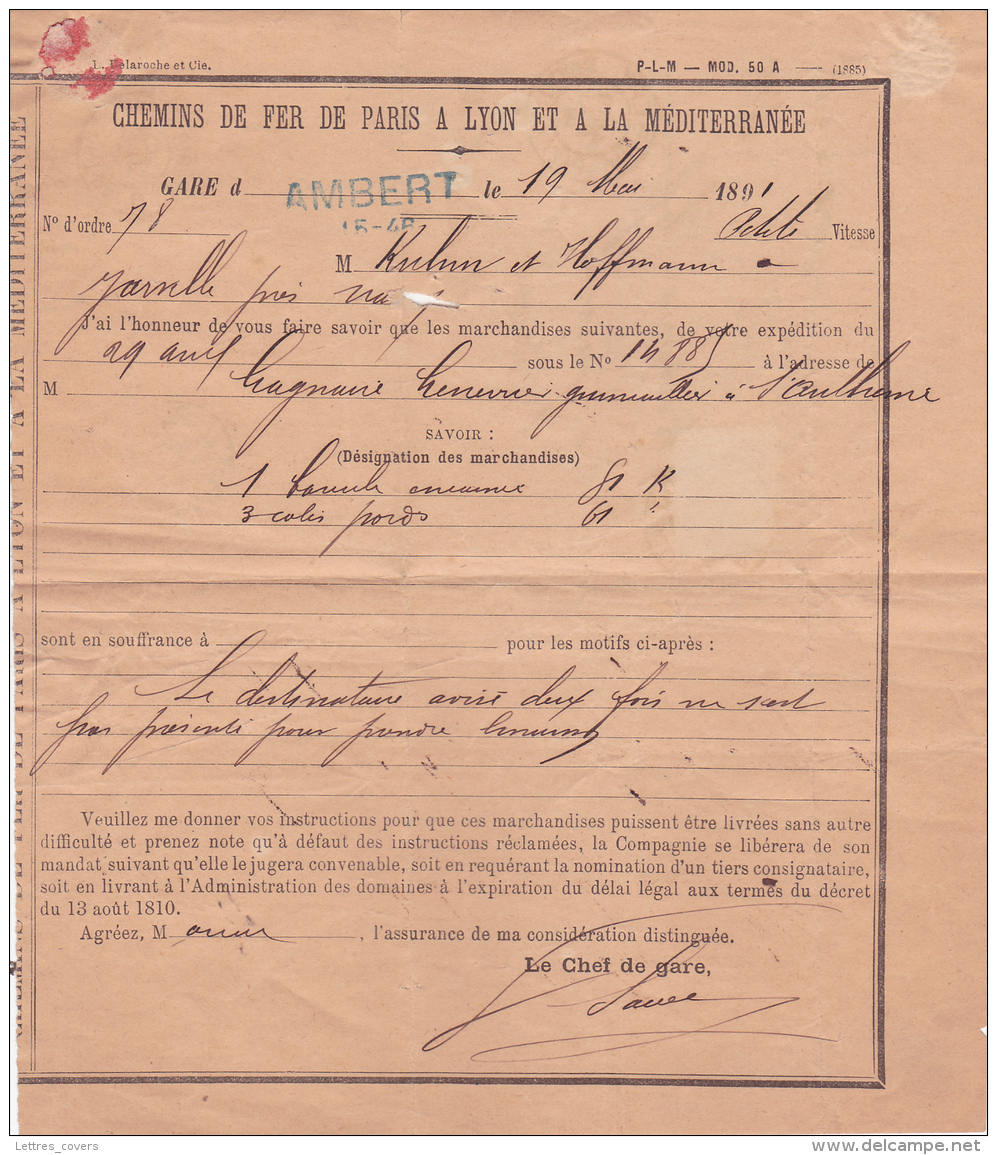 L. Delaroche et Cie. P-L-M — MOD. 50 A — (1885)
CHEMINS DE FER DE PARIS A LYON ET A LA MÉDITERRANÉE
GARE d AMBERT le 19 Mai 1891
15-46
N° d'ordre 78 Petite Vitesse
M Kuhnn et Hoffmann a
Jarville près
J'ai l'honneur de vous faire savoir que les marchandises suivantes, de votre expédition du
29 avril sous le N° 14885 à l'adresse de
M à
SAVOIR :
(Désignation des marchandises)
1 81 K
3 colis poids 61
sont en souffrance à pour les motifs ci-après :
Le destinataire avisé deux fois ne s'est
pas présenté pour prendre livraison
Veuillez me donner vos instructions pour que ces marchandises puissent être livrées sans autre
difficulté et prenez note qu'à défaut des instructions réclamées, la Compagnie se libérera de son
mandat suivant qu'elle le jugera convenable, soit en requérant la nomination d'un tiers consignataire,
soit en livrant à l'Administration des domaines à l'expiration du délai légal aux termes du décret
du 13 août 1810.
Agréez, M , l'assurance de ma considération distinguée.
Le Chef de gare,
CHEMINS DE FER DE PARIS A LYON ET A LA MÉDITERRANÉE
Lettres_covers www.delcampe.net